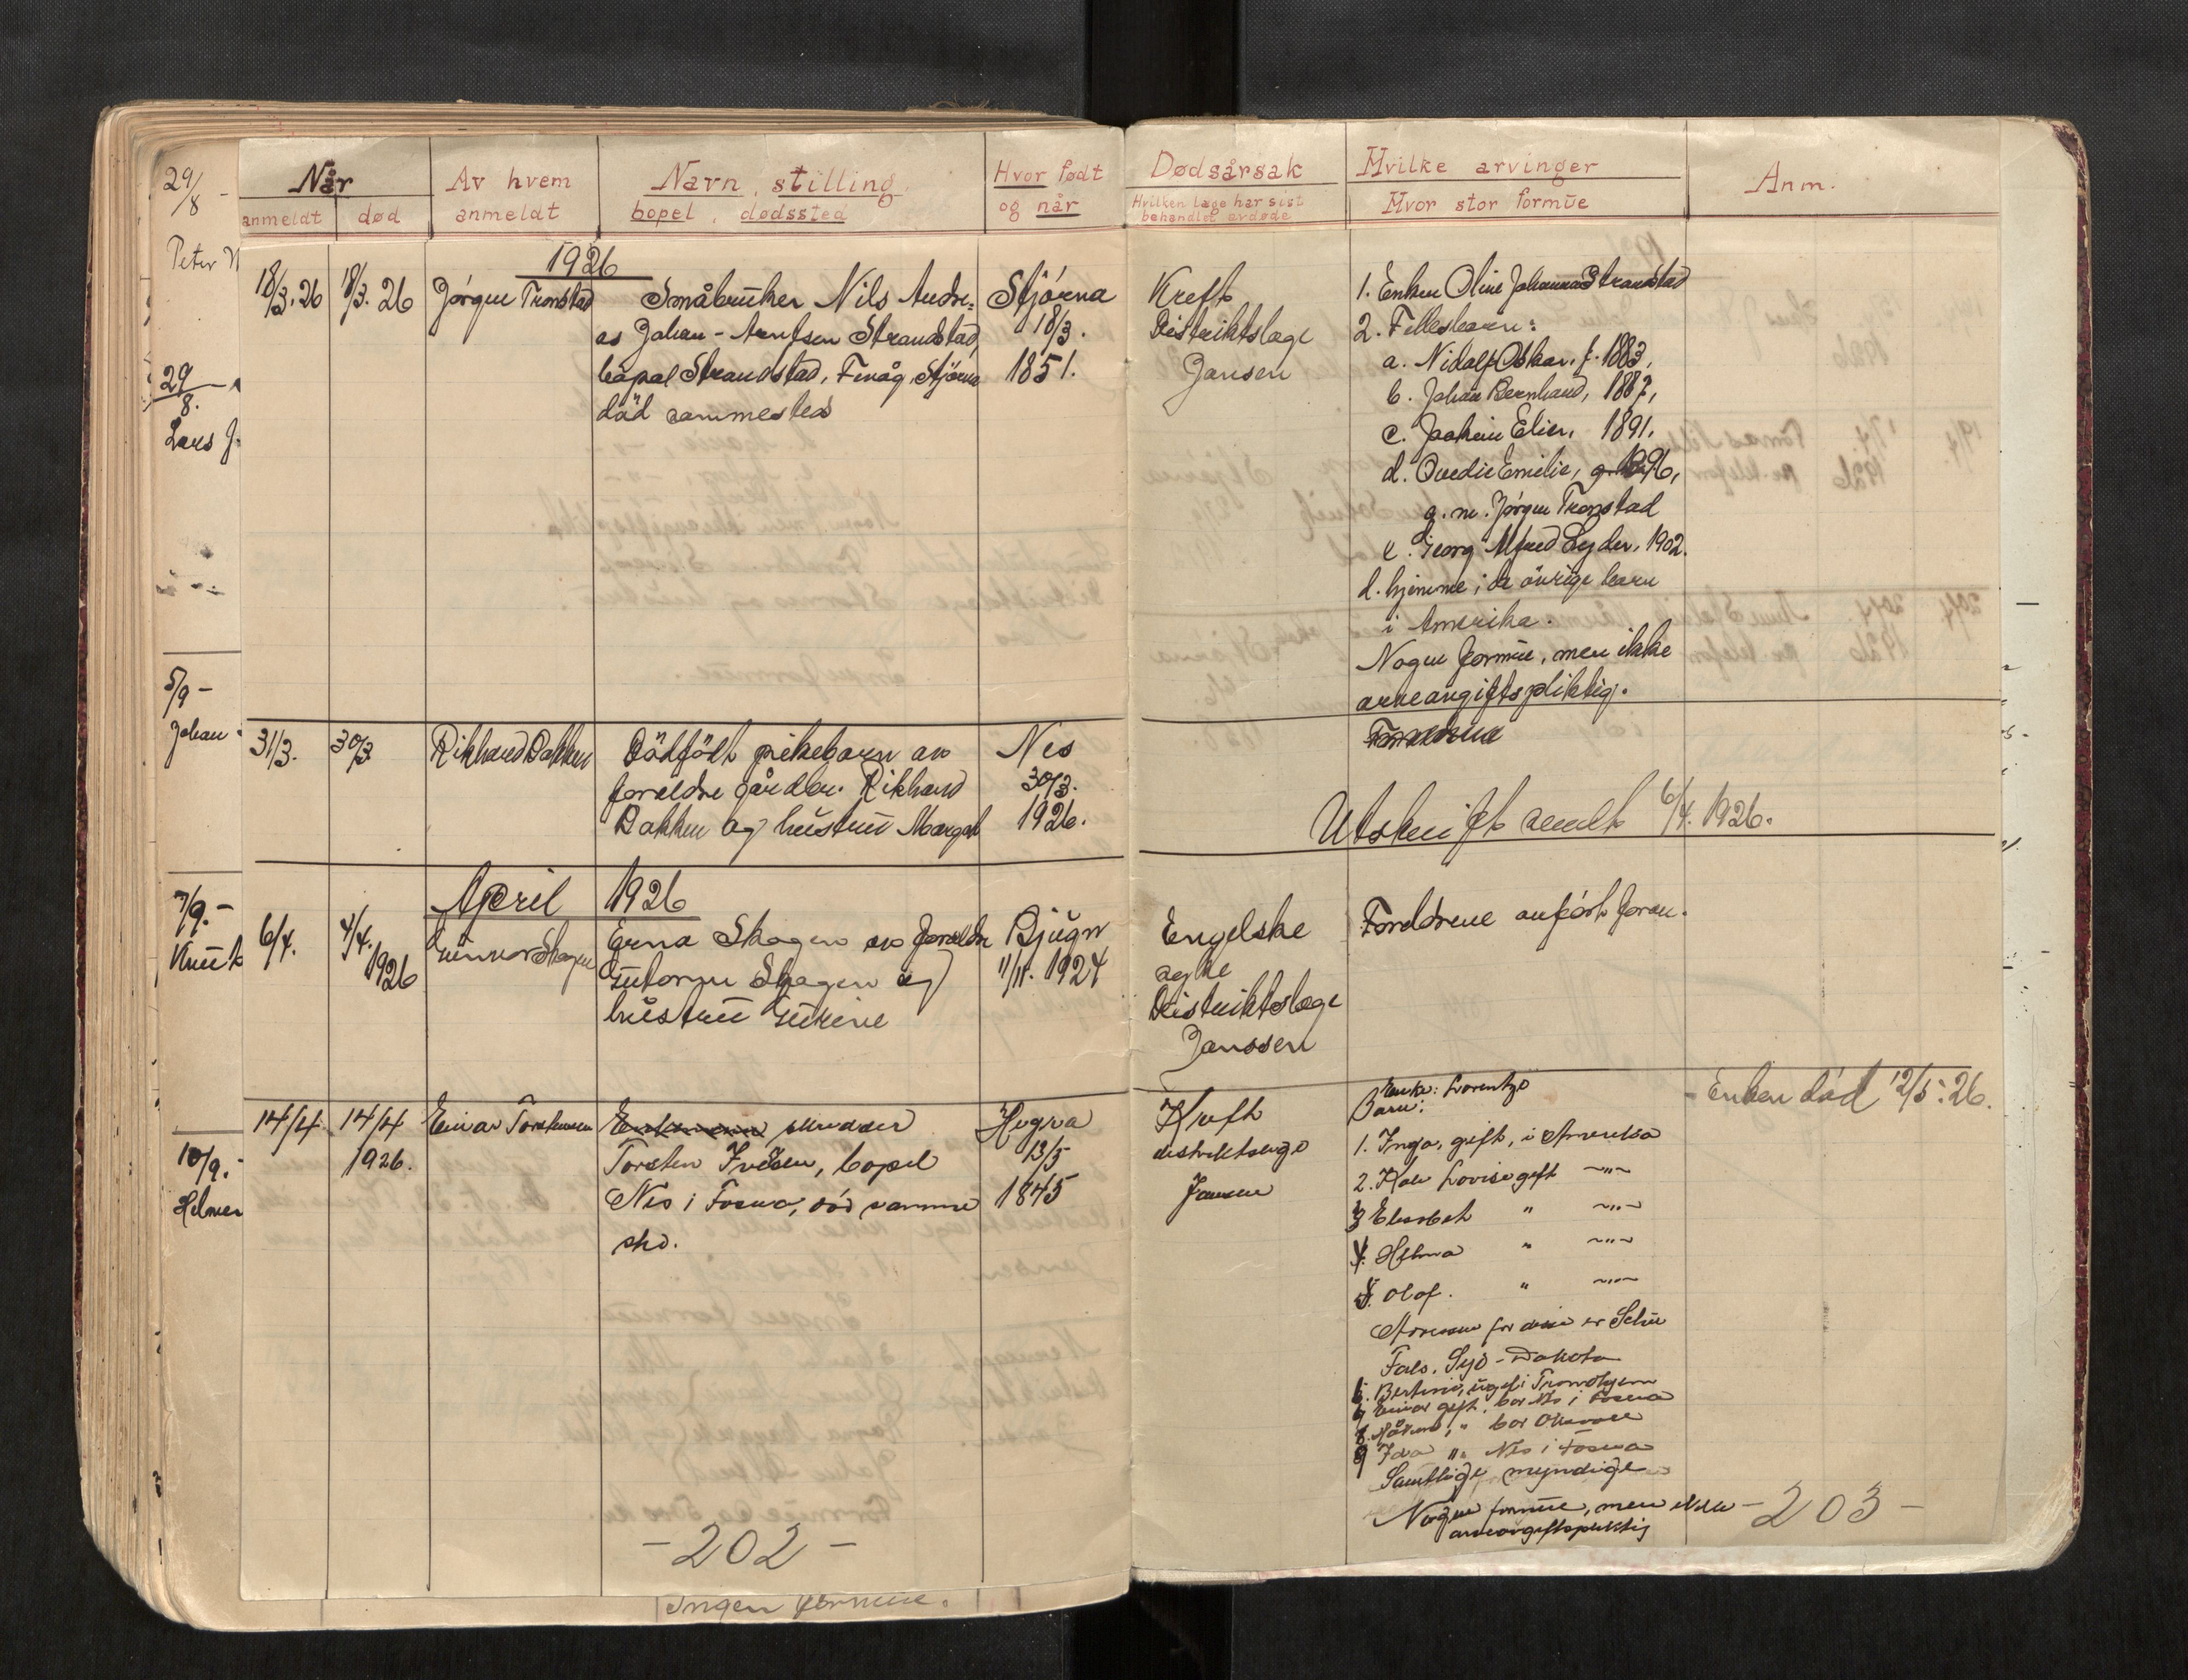 29/8 -
Peter
29/8.
Lars J.
5/9 -
Johan
7/9. -
Knut
10/9. -
Helmer
Når
anmeldt
død
Av hvem
anmeldt
Navn, stilling,
bopel, dødssted
Hvor født
og når
1926
18/3. 26
18/3. 26
Jørgen Tronstad
Småbruker Nils Andre-
as Johan- Arntsen Strandstad,
bopal Strandstad, Fevåg, Stjörna
död sammesteds
Stjórna
18/3.
1851.
31/3.
30/3
Rikhard Bakken
Dödfödt pikebarn av
foreldre gårdbr. Rikhard
Bakken og hustru Margit
Nes
30/3.
1926.
April 1926
6/4.
4/4.
1926
Gunnar Skagen
Erna Skagen av foreldre
Gutorm Skagen og
hustru Gurine
Bjugn
11/11. 1924
14/4.
14/4
1926.
Einar Torstensen
skredder
Torsten Iversen, bopel
Nes i Fosna, död samme
sted.
Hegra
13/5
1845
- 202 -
Ingen formue.
Dødsårsak
Hvilken læge har sist
behandlet avdøde
Hvilke arvinger
Hvor stor formue
Anm.
Kreft
Distriktslæge
Jansen
1. Enken Oline Johanna Strandstad
2. Fellesbarn:
a. Nidolf Oskar, f. 1883,
b. Johan Bernhard, 1887,
c. Joakim Elier, 1891.
d. Ovedie Emilie, 1896,
g. m. Jörgen Tronstad
e. Georg Alfred Leyder, 1902.
d. hjemme; de övrige barn
i Amerika.
Nogen formue, men ikke
arveavgiftspliktig.
Foreldrene
Utskrift sendt 6/4. 1926.
Engelske
syke
Distriktslæge
Janssen
Foreldrene anfört foran.
Kreft
distriktslæge
Jansen
Enke: Lorentze
Barn:
1. Inga, gift, i Amerika
2. Kate Lovise gift -"-
3 Elisabet " -"-
4. Helma " -"-
5. Olof. " -"-
Adressen for disse er
Fals. Syd-Dakota
6. Bertine, ugift i Trondhjem
7 Einar gift, bor Nes i Fosna
8. Håkon, " bor
9 Ida " Nes i Fosna
Samtlige myndige
Nogen formue, men ikke
arveavgiftspliktig
- Enken död 12/5. 26.
- 203 -